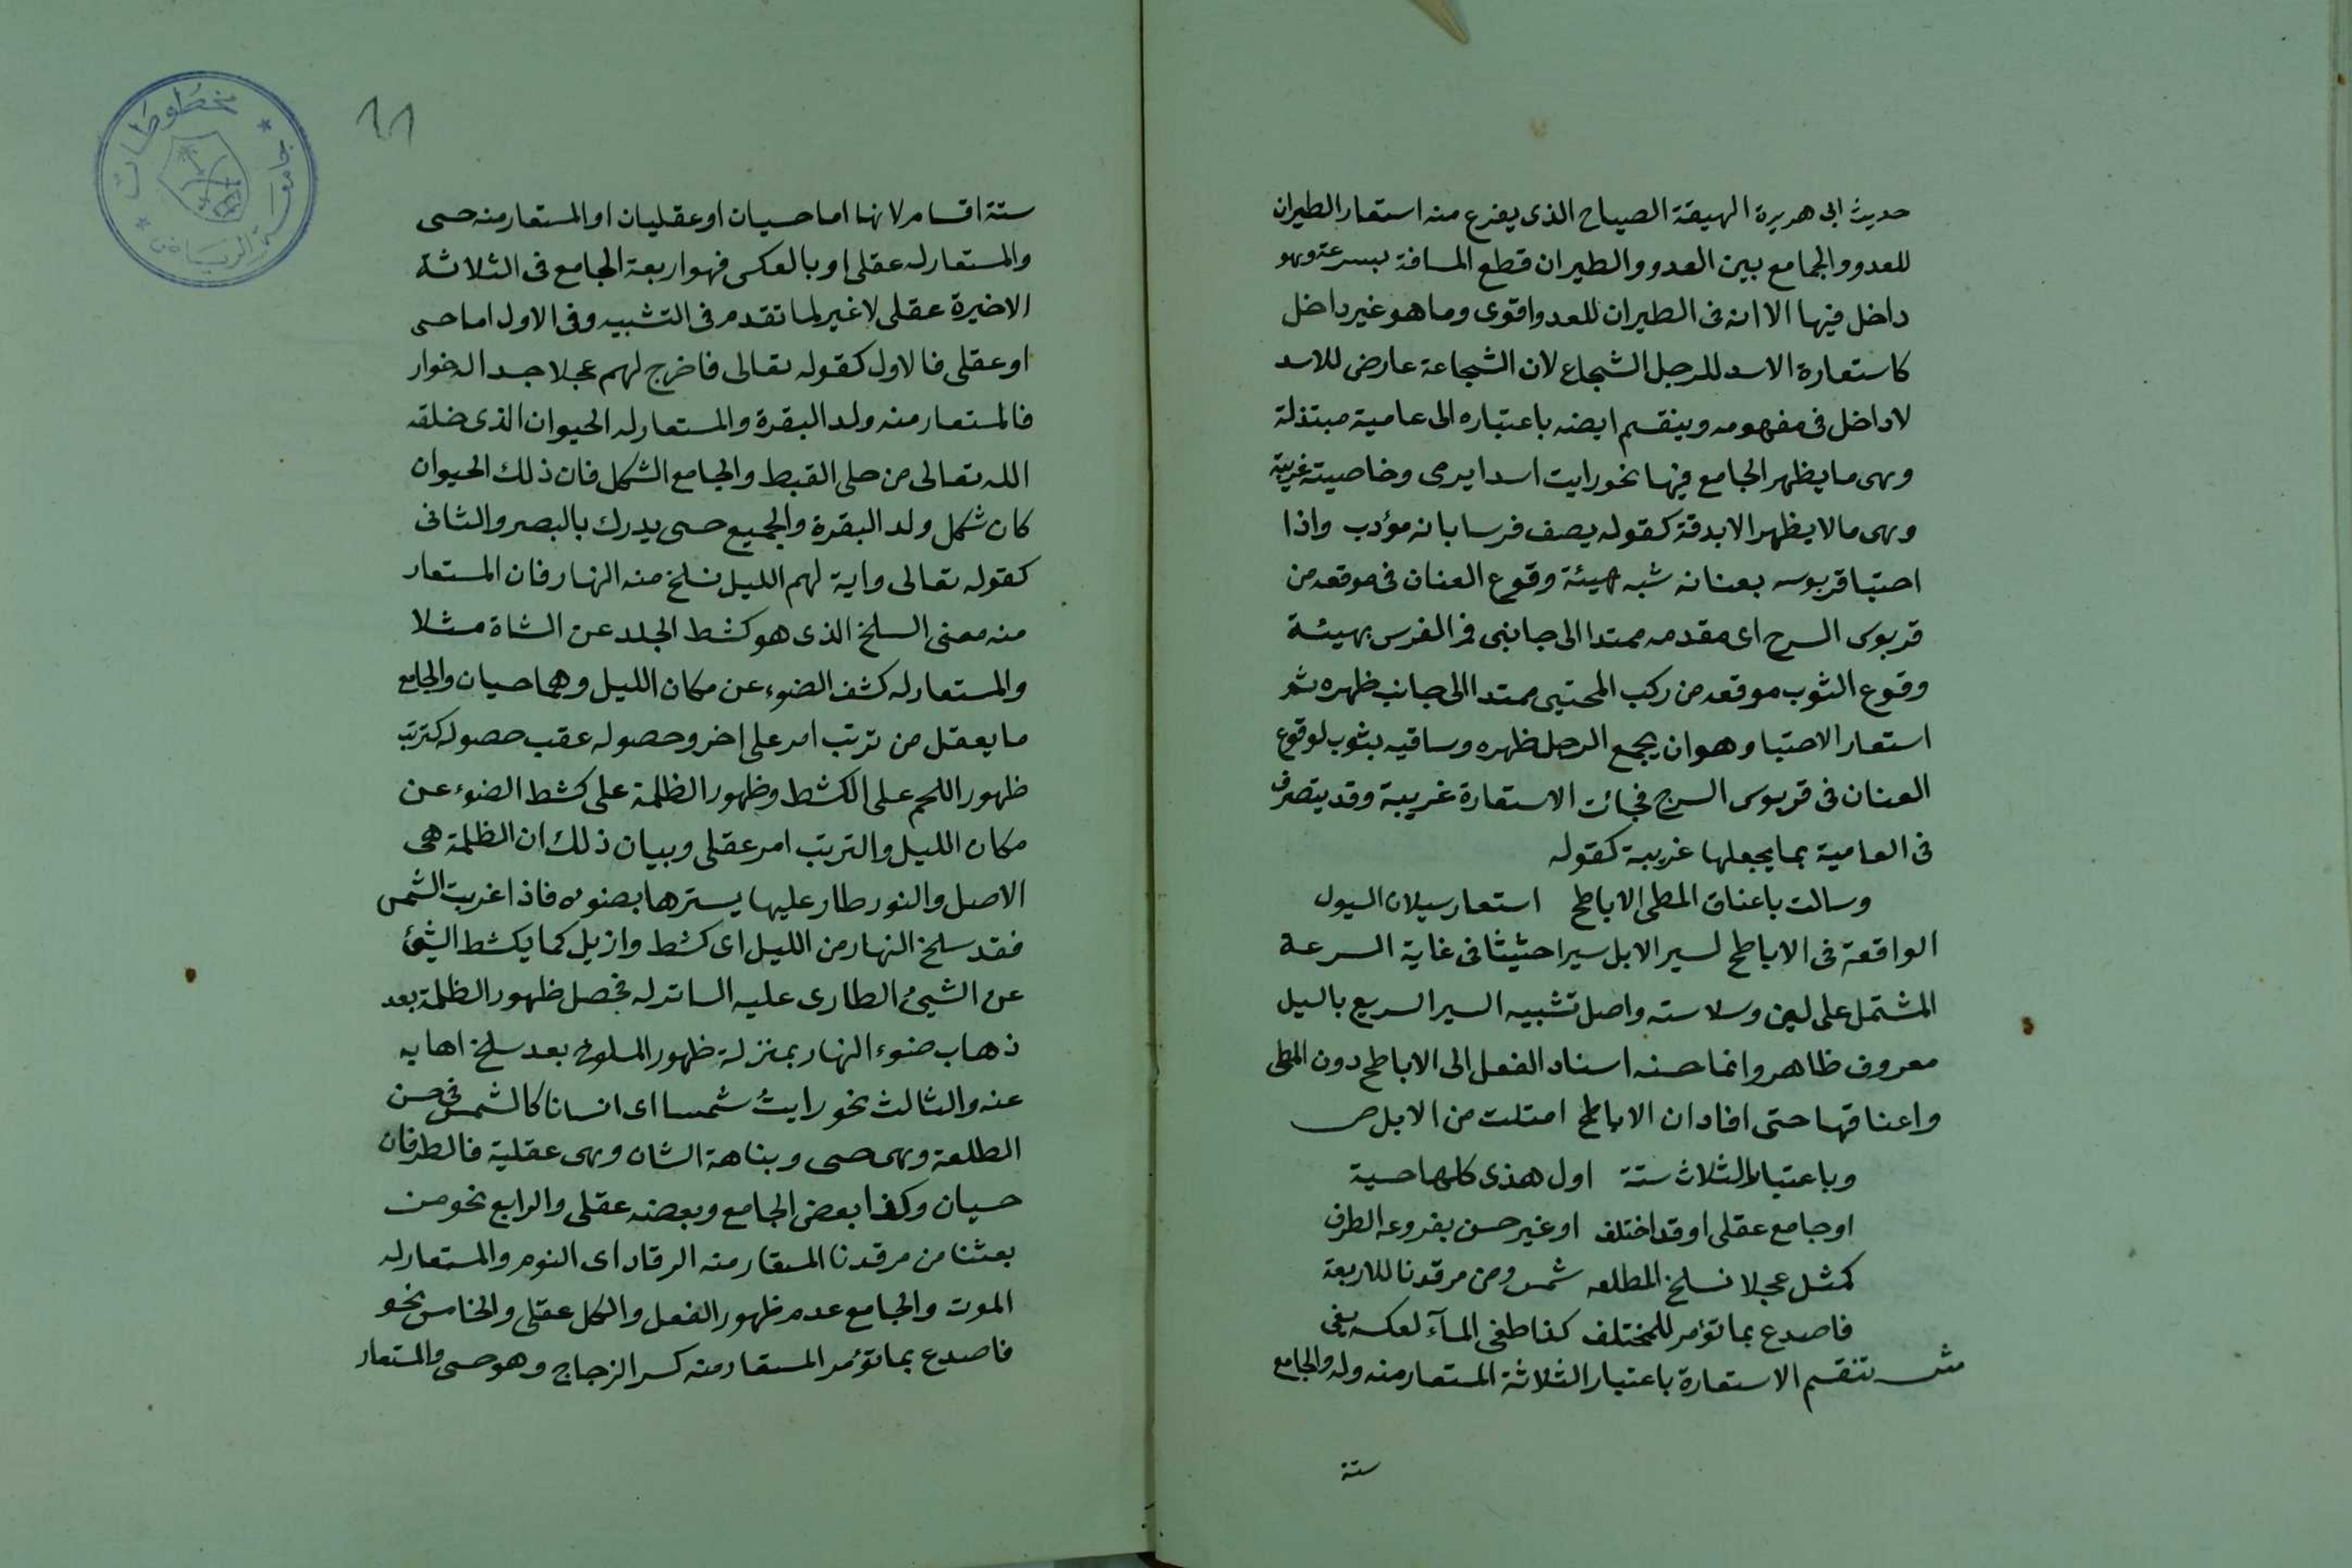 حديث ابى هريرة الهيعة الصياح الذى يفزع منه استعار الطيران
للعدو والجامع بين العدو والطيران قطع المسافة بسرعة وهو
داخل فيها الا انه فى الطيران للعدو اقوى وما هو غير داخل
كاستعارة الاسد للرجل الشجاع لان الشجاعة عارض للاسد
لا داخل فى مفهومه وينقسم ايضه باعتباره الى عامية مبتذلة
وهى ما يظهر الجامع فيها نحو رايت اسدا يرمى وخاصية غريبة
وهى ما لا يظهر الا بدقة كقوله يصف فرسا بانه مؤدب واذا
احتبا قربوسه بعنانه شبه هيئة وقوع العنان فى موقعه من
قربوس السرج اى مقدمه ممتدا الى جانبى فم الفرس بهيئة
وقوع الثوب موقعه من ركب المحتبى ممتدا الى جانب ظهره ثم
استعار الاحتبا وهو ان يجمع الرجل ظهره وساقيه بثوب لوقوع
العنان فى قربوس السرج فجائت الاستعارة غريبة وقد يتصرف
فى العامية بما يجعلها غريبة كقوله
وسالت باعناق المطى الاباطح استعار سيلان السيول
الواقعة فى الاباطح لسير الابل سيرا حثيثا فى غاية السرعة
المشتمل على لين وسلاسته واصل تشبيه السير السريع بالسيل
معروف ظاهر وانما حسنه اسناد الفعل الى الاباطح دون المطى
واعناقها حتى افاد ان الاباطح امتلت من الابل ص
وباعتبار الثلاث ستة اول هذى كلها حسية
او جامع عقلى او قد اختلف او غير حسن بفروعه الطرف
كمثل عجلا نسلخ المطلعه شمس ومن مرقدنا للاربعة
فاصدع بما تؤمر للمختلف كذا طغى المآء لعكسه يفى
ش تنقسم الاستعارة باعتبار الثلاثة المستعار منه وله والجامع
ستة
11
مخطوطات
جامعة الرياض
ستة اقسام لانها اما حسيان او عقليان او المستعار منه حسى
والمستعار له عقلى او بالعكس فهو اربعة الجامع فى الثلاثة
الاخيرة عقلى لا غير لما تقدم فى التشبيه وفى الاول اما حسى
او عقلى فالاول كقوله تعالى فاخرج لهم عجلا جسدا له خوار
فالمستعار منه ولد البقرة والمستعار له الحيوان الذى خلقه
الله تعالى من حلى القبط والجامع الشكل فان ذلك الحيوان
كان شكل ولد البقرة والجميع حسى يدرك بالبصر والثانى
كقوله تعالى واية لهم الليل نسلخ منه النهار فان المستعار
منه معنى السلخ الذى هو كشط الجلد عن الشاة مثلا
والمستعار له كشف الضوء عن مكان الليل وهما حسيان والجامع
ما يعقل من ترتب امر على اخر وحصوله عقب حصوله كترتب
ظهور اللحم على الكشط وظهور الظلمة على كشط الضوء عن
مكان الليل والترتب امر عقلى وبيان ذلك ان الظلمة هى
الاصل والنور طار عليها يسترها بضوئه فاذا غربت الشمس
فقد سلخ النهار من الليل اى كشط وازيل كما يكشط الشئ
عن الشئ الطارى عليه الساتر له فحصل ظهور الظلمة بعد
ذهاب ضوء النهار بمنزلة ظهور المسلوخ بعد سلخ اهابه
عنه والثالث نحو رايتُ شمسا اى انسانا كالشمس فى حسن
الطلعة وهى حسى وبناهة الشان وهى عقلية فالطرفان
حسيان وكذا بعض الجامع وبعضه عقلى والرابع نحو من
بعثنا من مرقدنا المستعار منه الرقاد اى النوم والمستعار له
الموت والجامع عدم ظهور الفعل والكل عقلى والخامس نحو
فاصدع بما تؤمر المستعار منه كسر الزجاج وهو حسى والمستعار